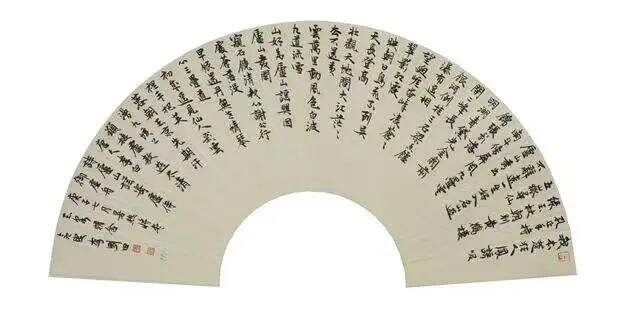 我本楚狂人鳳謌
孔丘手持
杖朝別黃鶴樓
五嶽尋仙
不辭遠一生好入名山遊
廬山秀出
南斗傍屏風九疊雲
錦張影落
明湖青黛光金闕前
開二峰長銀
河倒挂三石梁香爐
瀑布遙相
望迴崖沓嶂凌蒼蒼
翠影紅霞
映朝日鳥飛不到吳
天長登高
壯觀天地間大江茫茫
去不還黃
雲萬里動風色白波
九道流雪
山好為廬山謠興因
廬山發閑
窺石鏡清我心謝公行
處蒼苔沒
早服還丹無世情琴
心三疊道
初成遙見仙人彩雲
裡手把芙
蓉朝玉京先期汗
漫九垓上
願接盧敖遊太清
李白廬山謠寄盧侍
御虛舟
七月